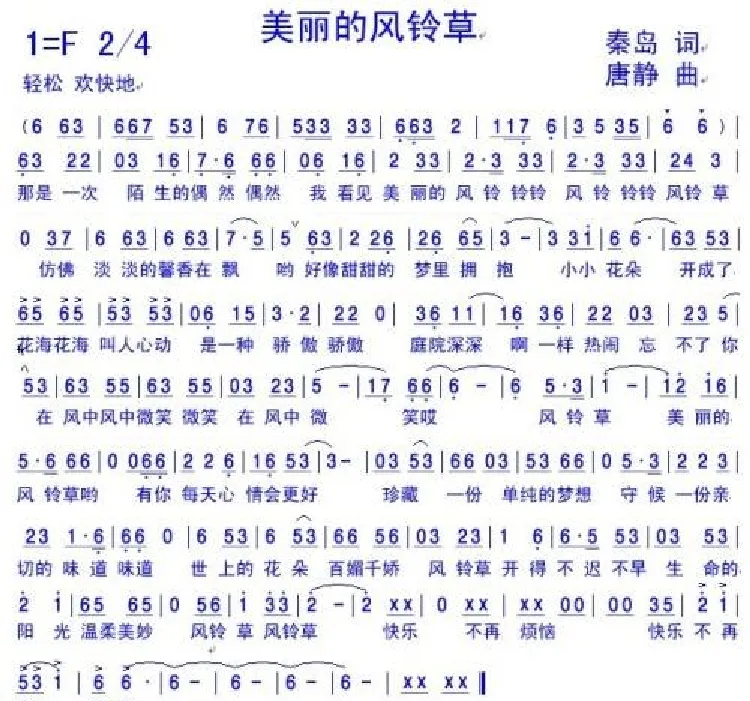 美丽的风铃草
1=F 2/4
秦岛 词
轻松 欢快地
唐静 曲
(6 63 | 667 53 | 6 76 | 533 33 | 663 2 | 117 6 | 3 5 35 | 6 6 ) |
63 22 | 03 16 | 7·6 66 | 06 16 | 2 33 | 2·3 33 | 2·3 33 | 24 3 |
那是 一次 陌 生的偶 然 偶然 我 看见 美 丽的 风 铃 铃铃 风 铃 铃铃 风铃 草
0 37 | 6 63 | 6 63 | 7·5 | 5 63 | 2 26 | 26 65 | 3 - | 3 31 | 6 6· | 63 53 |
仿佛 淡 淡的馨香在 飘 哟 好像甜甜的 梦里 拥 抱 小小 花朵 开成了
65 65 | 53 53 | 06 15 | 3·2 | 22 0 | 36 11 | 16 36 | 22 03 | 23 5 |
花海花海 叫人心动 是一种 骄 傲 骄傲 庭院深深 啊 一样 热闹 忘 不了 你
53 | 63 55 | 63 55 | 03 23 | 5 - | 17 66 | 6 - | 6 5·3 | 1 - | 12 16 |
在 风中风中微笑 微笑 在 风中 微 笑哎 风 铃 草 美 丽的
5·6 66 | 0 066 | 22 6 | 16 53 | 3- | 03 53 | 66 03 | 53 66 | 0 5·3 | 22 3 |
风 铃草哟 有你 每天心 情会更好 珍藏 一份 单纯的梦想 守 候 一份亲
23 1·6 | 66 0 | 6 53 | 6 53 | 66 56 | 03 23 | 1 6 | 6·5 53 | 03 23 |
切的 味 道 味道 世 上的 花 朵 百媚千娇 风 铃草 开 得 不 迟 不早 生 命的
2 1 | 65 65 | 0 56 | 1 33 | 2 - | 2 xx | 0 xx | xx 00 | 00 35 | 2 1 |
阳 光 温柔美妙 风铃 草 风铃草 快乐 不再 烦恼 快乐 不 再
53 1 | 6 6· | 6 - | 6 - | 6 - | 6 - | xx xx ‖